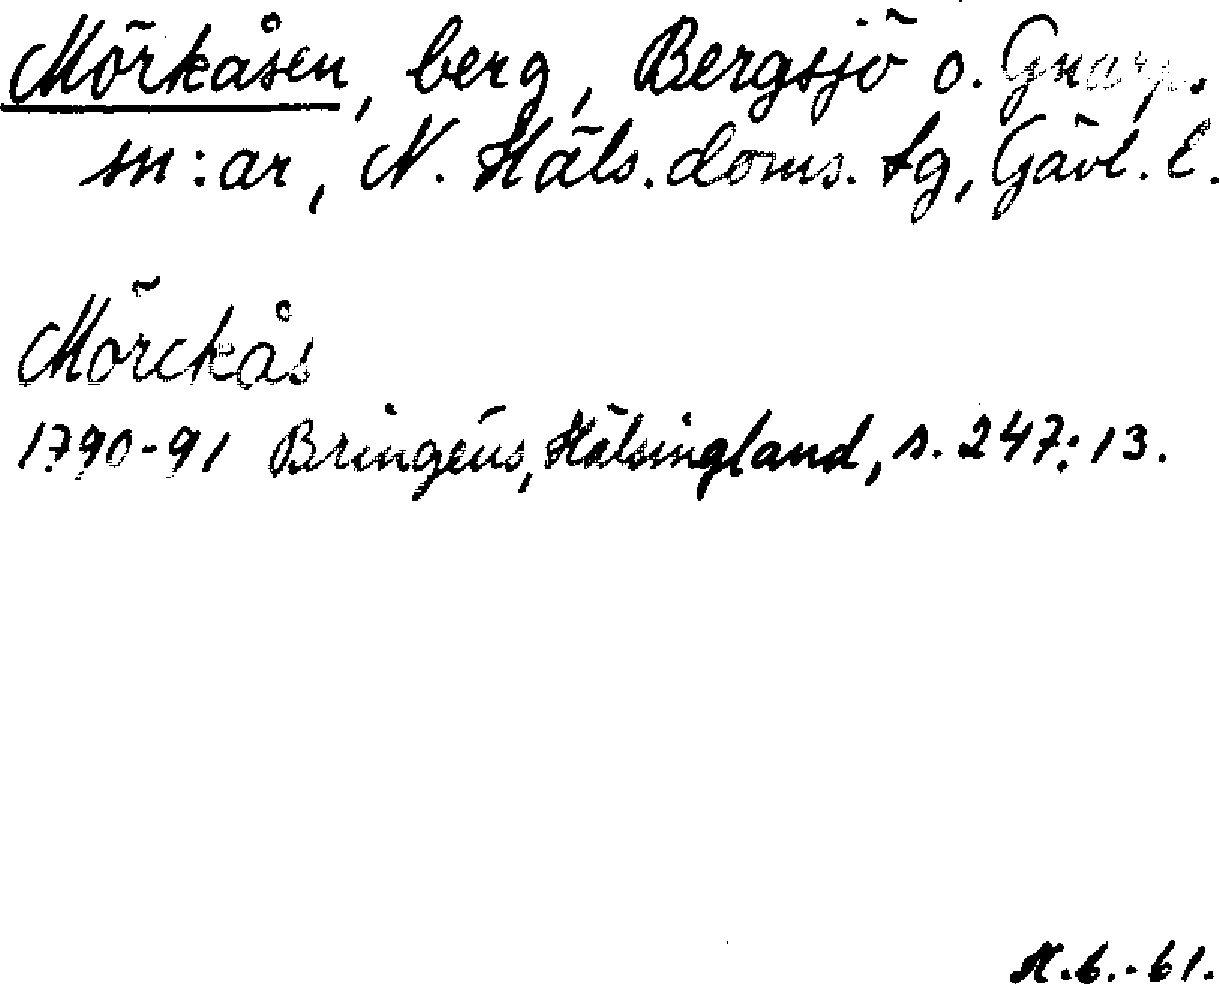 Mörkåsen, berg, Bergsjö o. Gnarp.
sn:ar, N. Häls. doms. tg, Gävl. l.
Mörckås
1790-91 Bringéus, Hälsingland, s. 247:13.
H.b.-61.